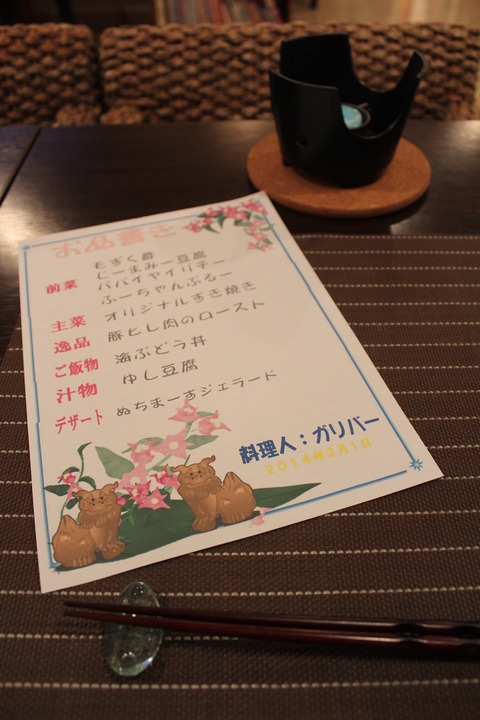 おしながき
前菜 もずく酢
じーまみー豆腐
パパイヤイリチー
ふーちゃんぷるー
主菜 オリジナルすき焼き
逸品 豚ヒレ肉のロースト
ご飯物 海ぶどう丼
汁物 ゆし豆腐
デザート ぬちまーすジェラード
料理人：ガリバー
2014年2月1日